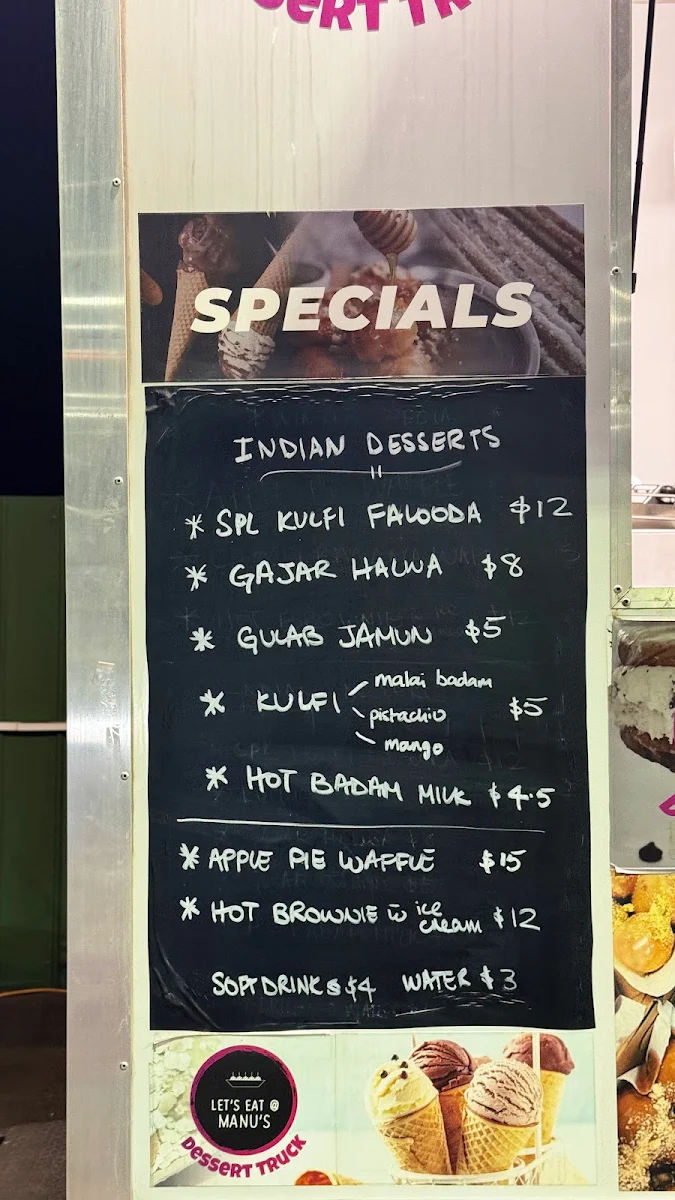 SPECIALS
INDIAN DESSERTS
* SPL KULFI FALOODA $12
* GAJAR HALWA $8
* GULAB JAMUN $5
* KULFI malai badam $5
pistachio
mango
* HOT BADAM MILK $4.5
* APPLE PIE WAFFLE $15
* HOT BROWNIE w ice cream $12
SOFT DRINKS $4 WATER $3
LET'S EAT @
MANU'S
DESSERT TRUCK